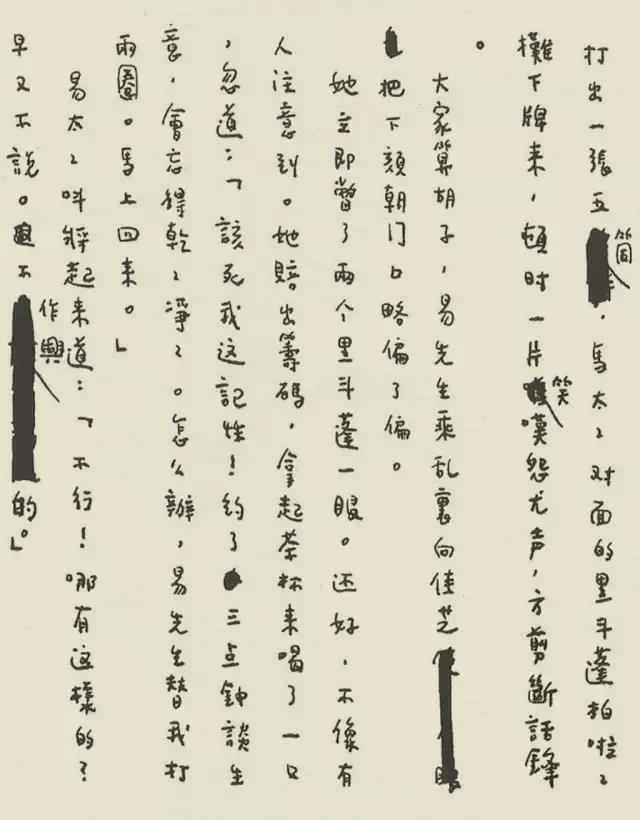 打出一張五筒，馬太々对面的黑斗蓬柏啦々
攤下牌来，頓时一片笑嘆怨尤声，方剪斷話鋒
。
大家算胡子，易先生乘乱裏向佳芝
把下頦朝门口略偏了偏。
她立即瞥了兩个黑斗蓬一眼。还好，不像有
人注意到。她賠出籌碼，拿起茶杯来喝了一口
，忽道：「該死我这記性！約了三点鈡談生
意，會忘得乾々淨々。怎么辦，易先生替我打
兩圈。馬上回来。」
易太々呌將起来道：「不行！哪有这樣的？
早又不說。不作興的。」